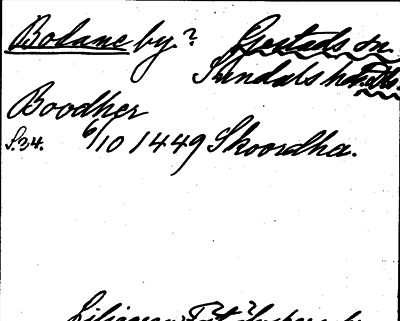 Bolane by? Gestads sn.
Sundals hd
Boodher
S.34. 6/10 1449 Skoordha.